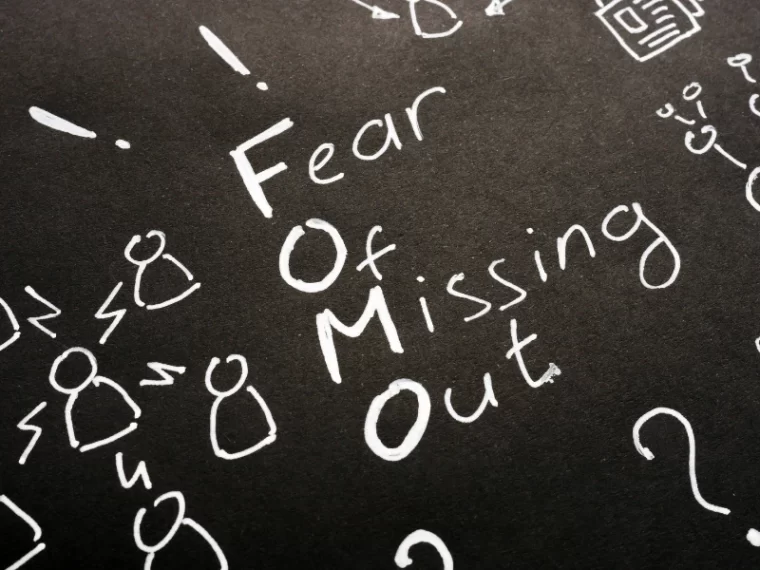 Fear
Of
Missing
Out
!
!
?
?